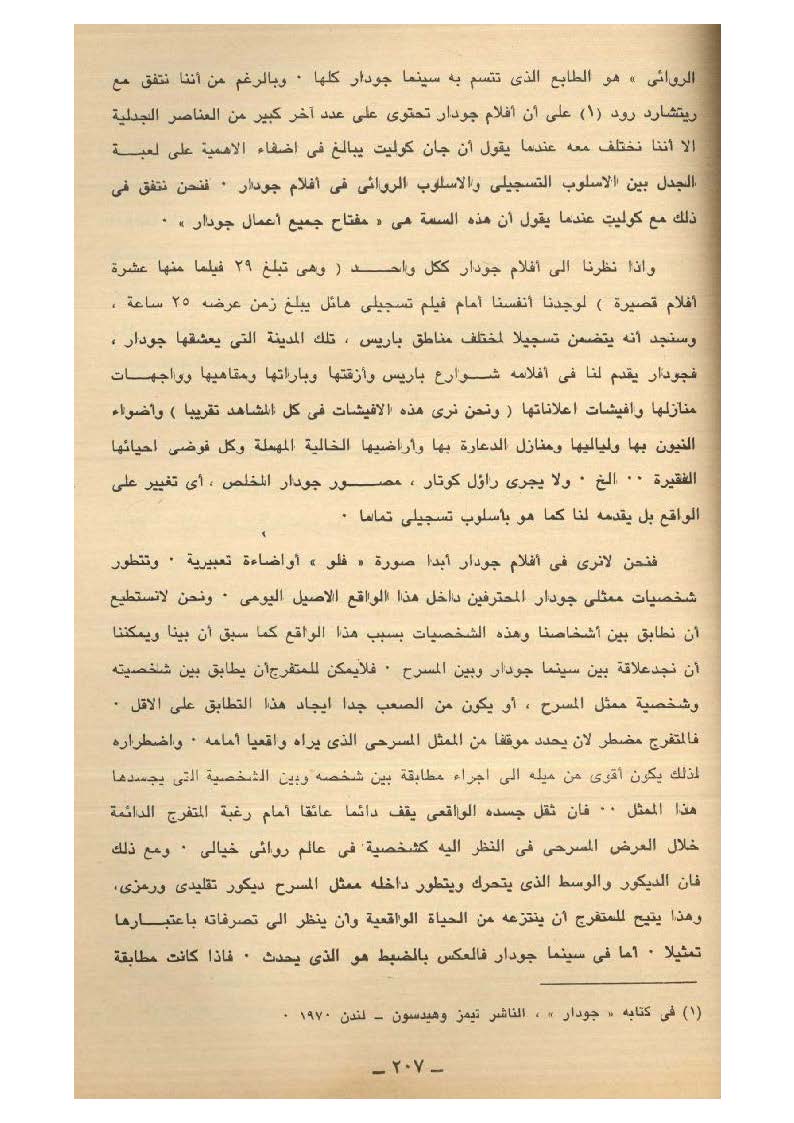 الروائى » هو الطابع الذى تتسم به سينما جودار كلها ٠ وبالرغم من أننا نتفق مع
ريتشارد رود (١) على أن أفلام جودار تحتوى على عدد آخر كبير من العناصر الجدلية
الا أننا نختلف معه عندما يقول أن جان كوليت يبالغ فى اضفاء الاهمية على لعبـــة
الجدل بين الاسلوب التسجيلى والاسلوب الروائى فى أفلام جودار ٠ فنحن نتفق فى
ذلك مع كوليت عندما يقول أن هذه السمة هى « مفتاح جميع أعمال جودار » ٠
واذا نظرنا الى أفلام جودار ككل واحـــد ( وهى تبلغ ٢٩ فيلما منها عشرة
أفلام قصيرة ) لوجدنا أنفسنا أمام فيلم تسجيلى هائل يبلغ زمن عرضه ٢٥ ساعة ،
وسنجد أنه يتضمن تسجيلا لمختلف مناطق باريس ، تلك المدينة التى يعشقها جودار ،
فجودار يقدم لنا فى أفلامه شــوارع باريس وأزقتها وباراتها ومقاهيها وواجهــات
منازلها وافيشات اعلاناتها ( ونحن نرى هذه الافيشات فى كل المشاهد تقريبا ) وأضواء
النيون بها ولياليها ومنازل الدعارة بها وأراضيها الخالية المهملة وكل فوضى احيائها
الفقيرة ٠٠ الخ ٠ ولا يجرى راؤل كوتار ، مصــور جودار المخلص ، أى تغيير على
الواقع بل يقدمه لنا كما هو بأسلوب تسجيلى تماما ٠
فنحن لانرى فى أفلام جودار أبدا صورة « فلو » أواضاءة تعبيرية ٠ وتتطور
شخصيات ممثلى جودار المحترفين داخل هذا الواقع الاصيل اليومى ٠ ونحن لانستطيع
أن نطابق بين أشخاصنا وهذه الشخصيات بسبب هذا الواقع كما سبق أن بينا ويمكننا
أن نجدعلاقة بين سينما جودار وبين المسرح ٠ فلايمكن للمتفرجأن يطابق بين شخصيته
وشخصية ممثل المسرح ، أو يكون من الصعب جدا ايجاد هذا التطابق على الاقل ٠
فالمتفرج مضطر لان يحدد موقفا من الممثل المسرحى الذى يراه واقعيا أمامه ٠ واضطراره
لذلك يكون أقوى من ميله الى اجراء مطابقة بين شخصه وبين الشخصية التى يجسدها
هذا الممثل ٠٠ فان ثقل جسده الواقعى يقف دائما عائقا أمام رغبة المتفرج الدائمة
خلال العرض المسرحى فى النظر اليه كشخصية فى عالم روائى خيالى ٠ ومع ذلك
فان الديكور والوسط الذى يتحرك ويتطور داخله ممثل المسرح ديكور تقليدى ورمزى،
وهذا يتيح للمتفرج أن ينتزعه من الحياة الواقعية وأن ينظر الى تصرفاته باعتبــارها
تمثيلا ٠ أما فى سينما جودار فالعكس بالضبط هو الذى يحدث ٠ فاذا كانت مطابقة
(١) فى كتابه « جودار » ، الناشر تيمز وهيدسون ــ لندن ١٩٧٠ ٠
ــ ٢٠٧ ــ